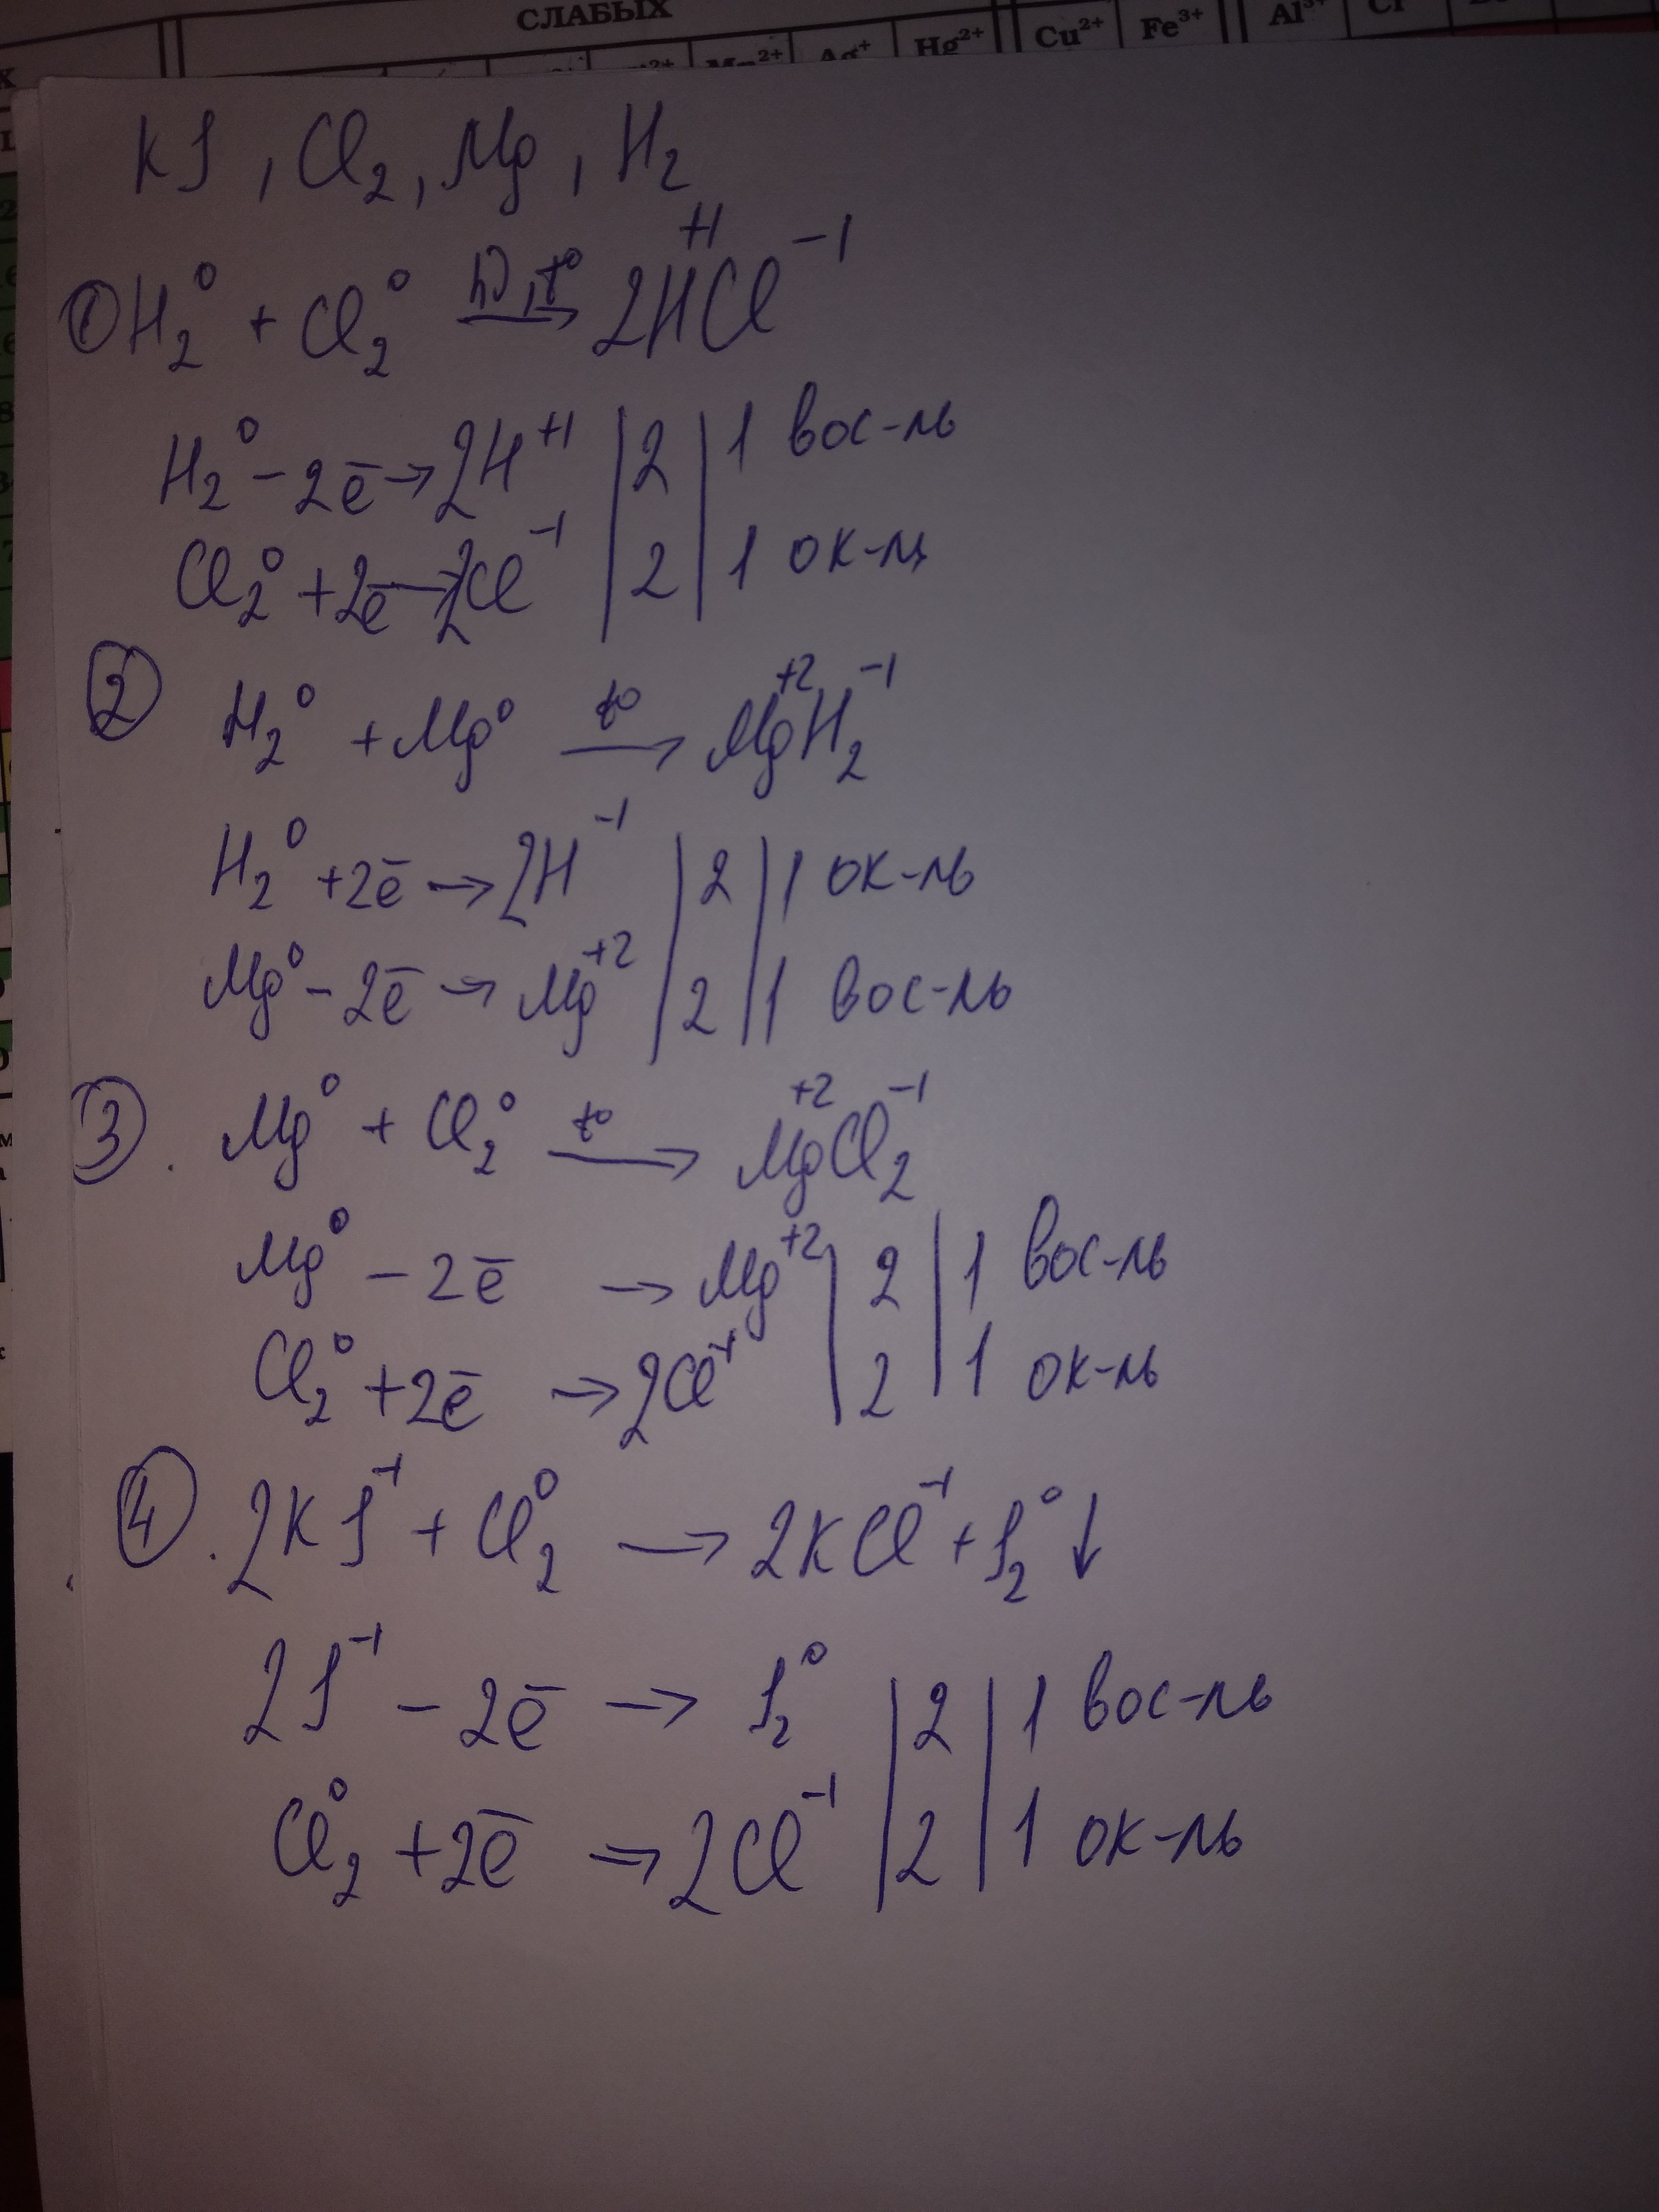 СЛАБЫХ
Hg²⁺ Cu²⁺ Fe³⁺ Al³⁺
KJ, Cl₂, Mg, H₂
① H₂⁰ + Cl₂⁰ hν, t° → 2H⁺¹Cl⁻¹
H₂⁰ − 2ē → 2H⁺¹ | 2 | 1 вос-ль
Cl₂⁰ + 2ē → 2Cl⁻¹ | 2 | 1 ок-ль
② H₂⁰ + Mg⁰ t° → Mg⁺²H₂⁻¹
H₂⁰ + 2ē → 2H⁻¹ | 2 | 1 ок-ль
Mg⁰ − 2ē → Mg⁺² | 2 | 1 вос-ль
③. Mg⁰ + Cl₂⁰ t° → Mg⁺²Cl₂⁻¹
Mg⁰ − 2ē → Mg⁺² | 2 | 1 вос-ль
Cl₂⁰ + 2ē → 2Cl⁻¹ | 2 | 1 ок-ль
④. 2KJ⁻¹ + Cl₂⁰ → 2KCl⁻¹ + J₂⁰ ↓
2J⁻¹ − 2ē → J₂⁰ | 2 | 1 вос-ль
Cl₂⁰ + 2ē → 2Cl⁻¹ | 2 | 1 ок-ль